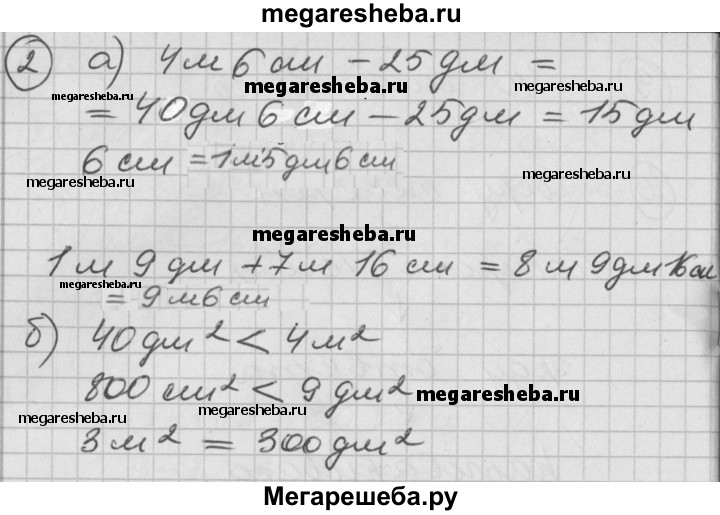 megaresheba.ru
2 а) 4 м 6 см - 25 дм =
megaresheba.ru
megaresheba.ru megaresheba.ru
= 40 дм 6 см - 25 дм = 15 дм
6 см = 1м 5 дм 6 см
megaresheba.ru megaresheba.ru
megaresheba.ru
1 м 9 дм + 7 м 16 см = 8 м 9 дм 16 см
megaresheba.ru
= 9 м 6 см
б) 40 дм² < 4 м²
800 см² < 9 дм²
megaresheba.ru
megaresheba.ru megaresheba.ru
3 м² = 300 дм²
Мегарешеба.ру